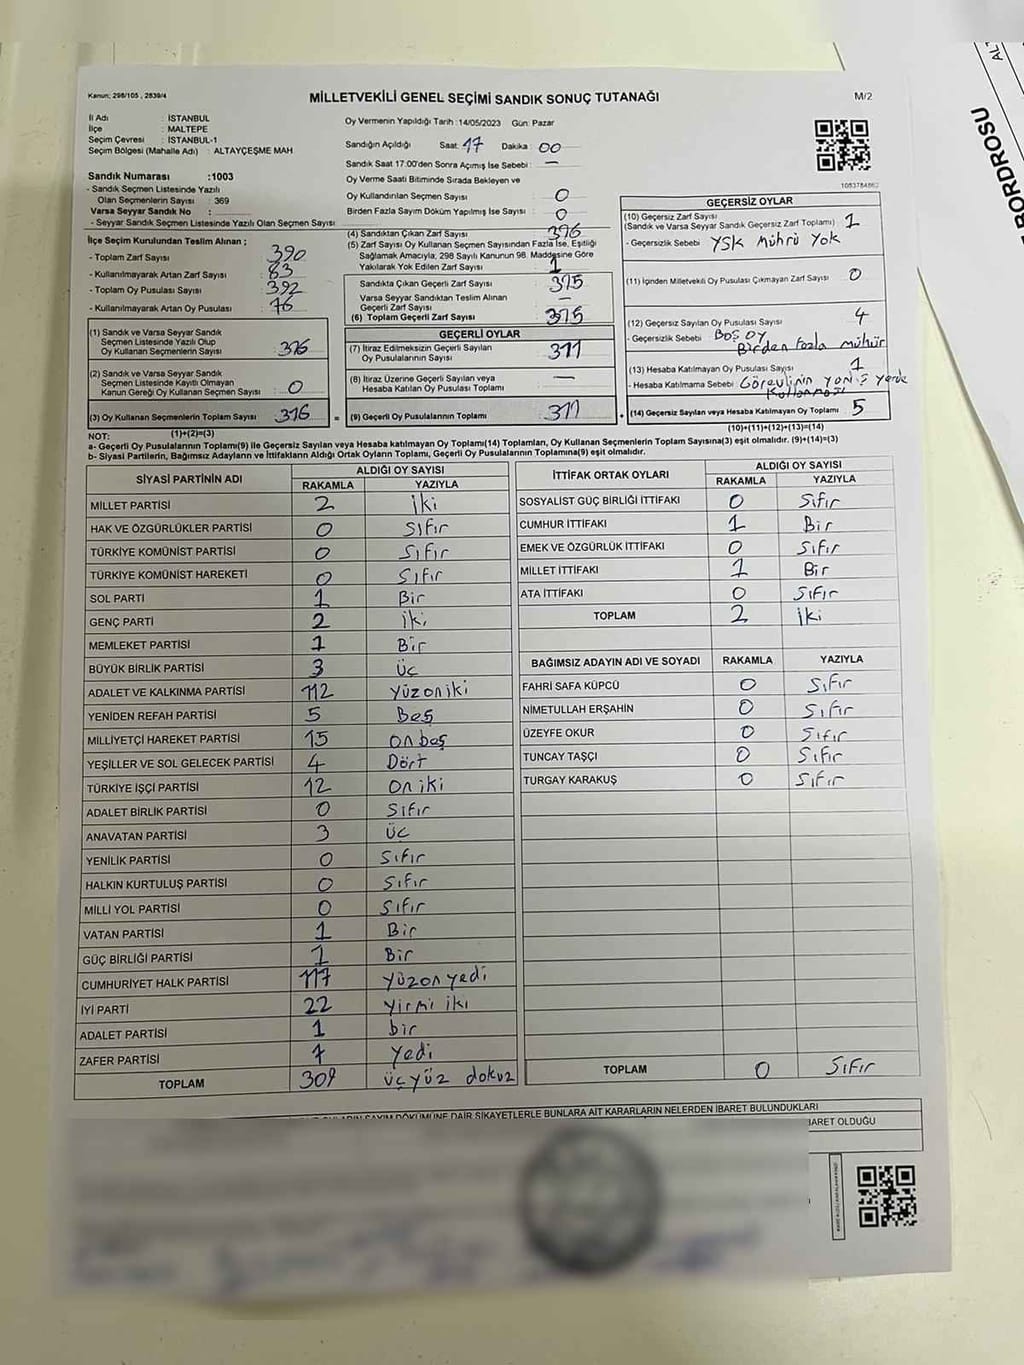 Kanun: 298/105 , 2839/4
MİLLETVEKİLİ GENEL SEÇİMİ SANDIK SONUÇ TUTANAĞI
M/2
İl Adı : İSTANBUL
İlçe : MALTEPE
Seçim Çevresi : İSTANBUL-1
Seçim Bölgesi (Mahalle Adı) : ALTAYÇEŞME MAH
Sandık Numarası :1003
- Sandık Seçmen Listesinde Yazılı
Olan Seçmenlerin Sayısı : 369
Varsa Seyyar Sandık No :
- Seyyar Sandık Seçmen Listesinde Yazılı Olan Seçmen Sayısı
İlçe Seçim Kurulundan Teslim Alınan ;
- Toplam Zarf Sayısı : 390
- Kullanılmayarak Artan Zarf Sayısı : 83
- Toplam Oy Pusulası Sayısı : 392
- Kullanılmayarak Artan Oy Pusulası : 76
(1) Sandık ve Varsa Seyyar Sandık
Seçmen Listesinde Yazılı Olup
Oy Kullanan Seçmenlerin Sayısı 316
(2) Sandık ve Varsa Seyyar Sandık
Seçmen Listesinde Kayıtlı Olmayan
Kanun Gereği Oy Kullanan Seçmen Sayısı 0
(3) Oy Kullanan Seçmenlerin Toplam Sayısı 316
(1)+(2)=(3)
Oy Vermenin Yapıldığı Tarih : 14/05/2023 Gün: Pazar
Sandığın Açıldığı Saat: 17 Dakika : 00
Sandık Saat 17:00'den Sonra Açımış İse Sebebi : —
Oy Verme Saati Bitiminde Sırada Bekleyen ve
Oy Kullandırılan Seçmen Sayısı : 0
Birden Fazla Sayım Döküm Yapılmış İse Sayısı : 0
(4) Sandıktan Çıkan Zarf Sayısı : 316
(5) Zarf Sayısı Oy Kullanan Seçmen Sayısından Fazla İse, Eşitliği
Sağlamak Amacıyla, 298 Sayılı Kanunun 98. Maddesine Göre
Yakılarak Yok Edilen Zarf Sayısı 1
Sandıkta Çıkan Geçerli Zarf Sayısı : 315
Varsa Seyyar Sandıktan Teslim Alınan
Geçerli Zarf Sayısı : —
(6) Toplam Geçerli Zarf Sayısı : 315
GEÇERLİ OYLAR
(7) İtiraz Edilmeksizin Geçerli Sayılan
Oy Pusulalarının Sayısı 311
(8) İtiraz Üzerine Geçerli Sayılan veya
Hesaba Katılan Oy Pusulası Toplamı —
= (9) Geçerli Oy Pusulalarının Toplamı 311
1083784862
GEÇERSİZ OYLAR
(10) Geçersiz Zarf Sayısı
(Sandık ve Varsa Seyyar Sandık Geçersiz Zarf Toplamı) : 1
- Geçersizlik Sebebi : YSK Mührü Yok
(11) İçinden Milletvekili Oy Pusulası Çıkmayan Zarf Sayısı : 0
(12) Geçersiz Sayılan Oy Pusulası Sayısı : 4
- Geçersizlik Sebebi : BOŞ OY
Birden fazla mühür
(13) Hesaba Katılmayan Oy Pusulası Sayısı : 1
- Hesaba Katılmama Sebebi : Görevlinin yanlış yerde
kullanması
+ (14) Geçersiz Sayılan veya Hesaba Katılmayan Oy Toplamı 5
(10)+(11)+(12)+(13)=(14)
NOT:
a- Geçerli Oy Pusulalarının Toplamı(9) ile Geçersiz Sayılan veya Hesaba katılmayan Oy Toplamı(14) Toplamları, Oy Kullanan Seçmenlerin Toplam Sayısına(3) eşit olmalıdır. (9)+(14)=(3)
b- Siyasi Partilerin, Bağımsız Adayların ve İttifakların Aldığı Ortak Oyların Toplamı, Geçerli Oy Pusulalarının Toplamına(9) eşit olmalıdır.
SİYASİ PARTİNİN ADI ALDIĞI OY SAYISI
RAKAMLA YAZIYLA
MİLLET PARTİSİ 2 iki
HAK VE ÖZGÜRLÜKLER PARTİSİ 0 Sıfır
TÜRKİYE KOMÜNİST PARTİSİ 0 Sıfır
TÜRKİYE KOMÜNİST HAREKETİ 0 Sıfır
SOL PARTİ 1 Bir
GENÇ PARTİ 2 iki
MEMLEKET PARTİSİ 1 Bir
BÜYÜK BİRLİK PARTİSİ 3 üç
ADALET VE KALKINMA PARTİSİ 112 yüzoniki
YENİDEN REFAH PARTİSİ 5 Beş
MİLLİYETÇİ HAREKET PARTİSİ 15 onbeş
YEŞİLLER VE SOL GELECEK PARTİSİ 4 Dört
TÜRKİYE İŞÇİ PARTİSİ 12 on iki
ADALET BİRLİK PARTİSİ 0 Sıfır
ANAVATAN PARTİSİ 3 üç
YENİLİK PARTİSİ 0 Sıfır
HALKIN KURTULUŞ PARTİSİ 0 Sıfır
MİLLİ YOL PARTİSİ 0 Sıfır
VATAN PARTİSİ 1 Bir
GÜÇ BİRLİĞİ PARTİSİ 1 Bir
CUMHURİYET HALK PARTİSİ 117 yüzon yedi
İYİ PARTİ 22 yirmi iki
ADALET PARTİSİ 1 bir
ZAFER PARTİSİ 7 yedi
TOPLAM 309 üçyüz dokuz
İTTİFAK ORTAK OYLARI ALDIĞI OY SAYISI
RAKAMLA YAZIYLA
SOSYALİST GÜÇ BİRLİĞİ İTTİFAKI 0 Sıfır
CUMHUR İTTİFAKI 1 Bir
EMEK VE ÖZGÜRLÜK İTTİFAKI 0 Sıfır
MİLLET İTTİFAKI 1 Bir
ATA İTTİFAKI 0 Sıfır
TOPLAM 2 iki
BAĞIMSIZ ADAYIN ADI VE SOYADI RAKAMLA YAZIYLA
FAHRİ SAFA KÜPCÜ 0 Sıfır
NİMETULLAH ERŞAHİN 0 Sıfır
ÜZEYFE OKUR 0 Sıfır
TUNCAY TAŞÇI 0 Sıfır
TURGAY KARAKUŞ 0 Sıfır
TOPLAM 0 Sıfır
SAYIM DÖKÜMÜNE DAİR ŞİKAYETLERLE BUNLARA AİT KARARLARIN NELERDEN İBARET BULUNDUKLARI
İBARET OLDUĞU
BORDROSU
ALT